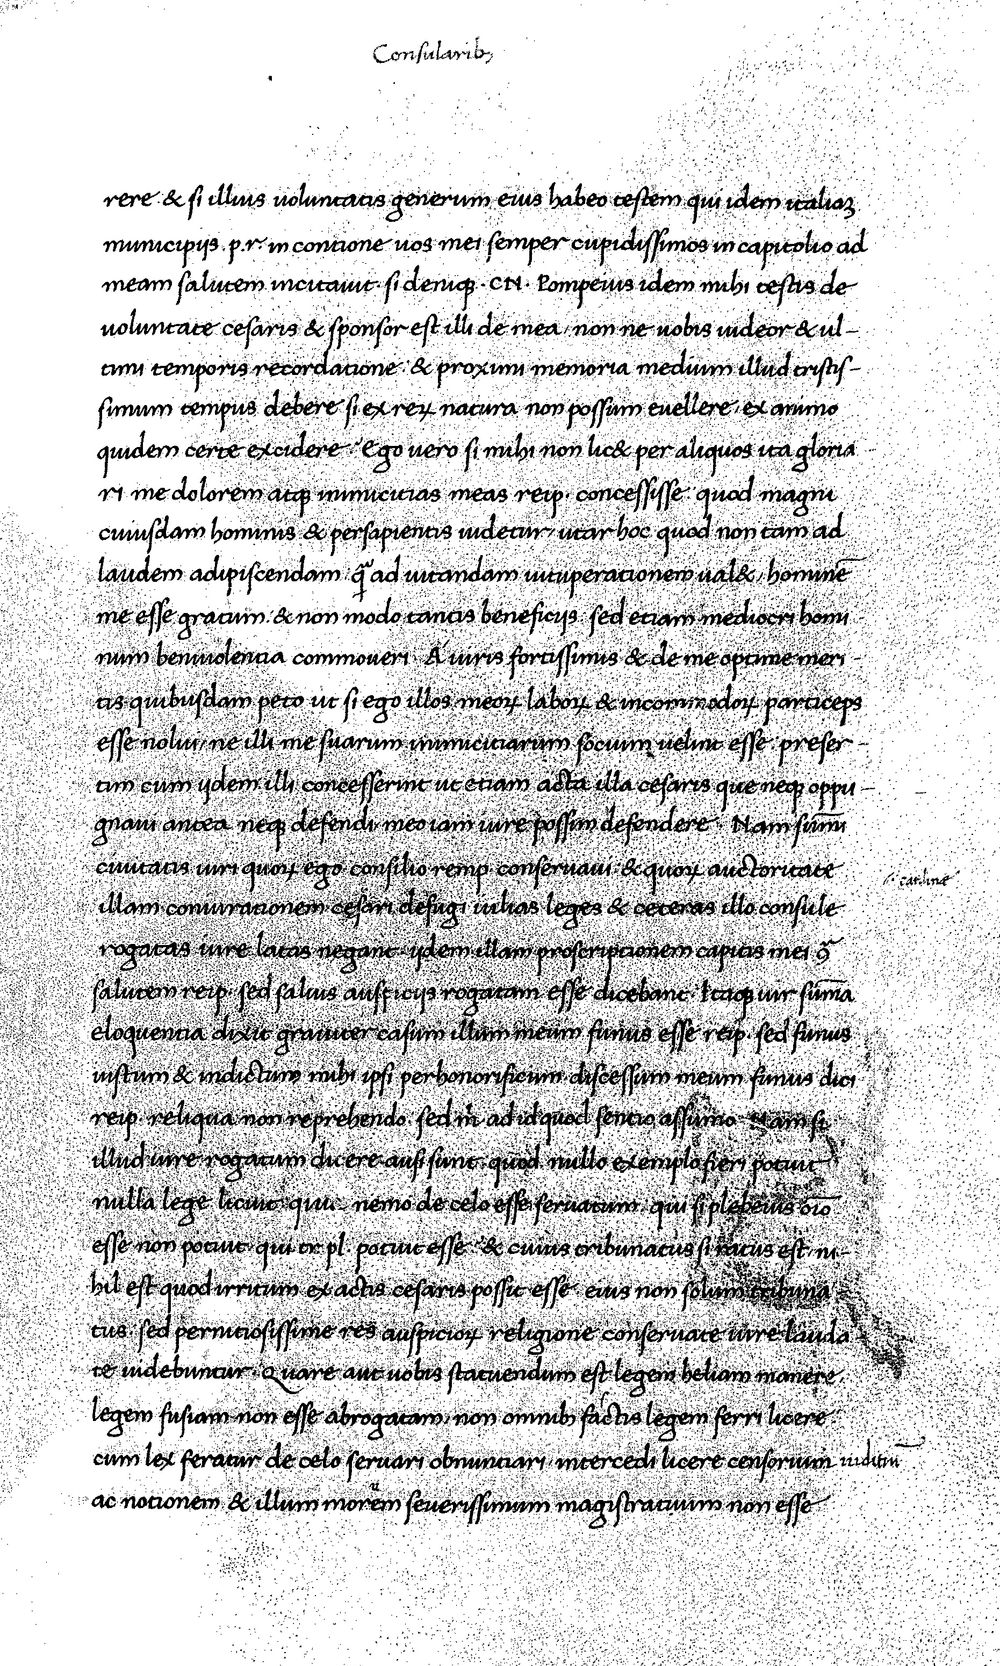 Consularibꝫ
rere & si illius uoluntatis generum eius habeo testem qui idem italiaꝫ
municipijs p.r in contione uos mei semper cupidissimos in capitolio ad
meam salutem incitauit. si deniqꝫ · CN · Pompeius idem mihi testis de
uoluntate cesaris & sponsor est illi de mea, non ne uobis uideor & ul-
timi temporis recordatione · & proximi memoria medium illud tristis-
simum tempus debere si ex reꝝ natura non possum euellere, ex animo
quidem certe excidere · Ego uero si mihi non lic& per aliquos ita gloria
ri me dolorem atqꝫ inimicitias meas reip. concessisse. quod magni
cuiusdam hominis & persapientis uidetur, utar hoc quod non tam ad
laudem adipiscendam q̃ ad uitandam uituperationem ual&, hominē
me esse gratum. & non modo tantis beneficijs sed etiam mediocri homi
num beniuolentia commoueri · A uiris fortissimis & de me optime meri-
tis quibusdam peto ut si ego illos meoꝝ laboꝝ & incommodoꝝ particeps
esse nolui, ne illi me suarum inimicitiarum socium uelint esse. preser-
tim cum ijdem illi concesserint ut etiam acta illa cesaris que neqꝫ oppu-
gnaui antea neqꝫ defendi meo iam iure possim defendere · Nam sūmi
ciuitatis uiri quoꝝ ego consilio remp. conseruaui & quoꝝ auctoritate
illam coniurationem cesari defugi iulias leges & ceteras illo consule
catilinę
rogatas iure latas negant. ijdem illam proscriptionem capitis mei q̃
salutem reip. sed saluis auspicijs rogatam esse dicebant. Itaqꝫ uir sūma
eloquentia dixit grauiter casum illum meum funus esse reip. sed funus
iustum & indictum mihi ipsi perhonorificum discessum meum funus dici
reip. reliqua non reprehendo. sed m̄ ad id quod sentio assumo · Nam si
illud iure rogatum dicere ausi sunt. quod nullo exemplo fieri potuit
nulla lege licuit. nemo de celo esse seruatum. qui si plebeius oīo
esse non potuit. qui tr. pl. potuit esse · & cuius tribunatus si ratus est. ni-
hil est quod irritum ex actis cesaris possit esse · eius non solum tribuna
tus. sed pernitiosissime res auspicioꝝ religione conseruate iure lauda
te uidebuntur. Quare aut uobis statuendum est legem heliam manere,
legem fusiam non esse abrogatam, non omnibꝫ factis legem ferri licere.
cum lex feratur de celo seruari obnuntiari. intercedi licere censorium iuditiū
ac notionem & illum morem seuerissimum magistratuum non esse